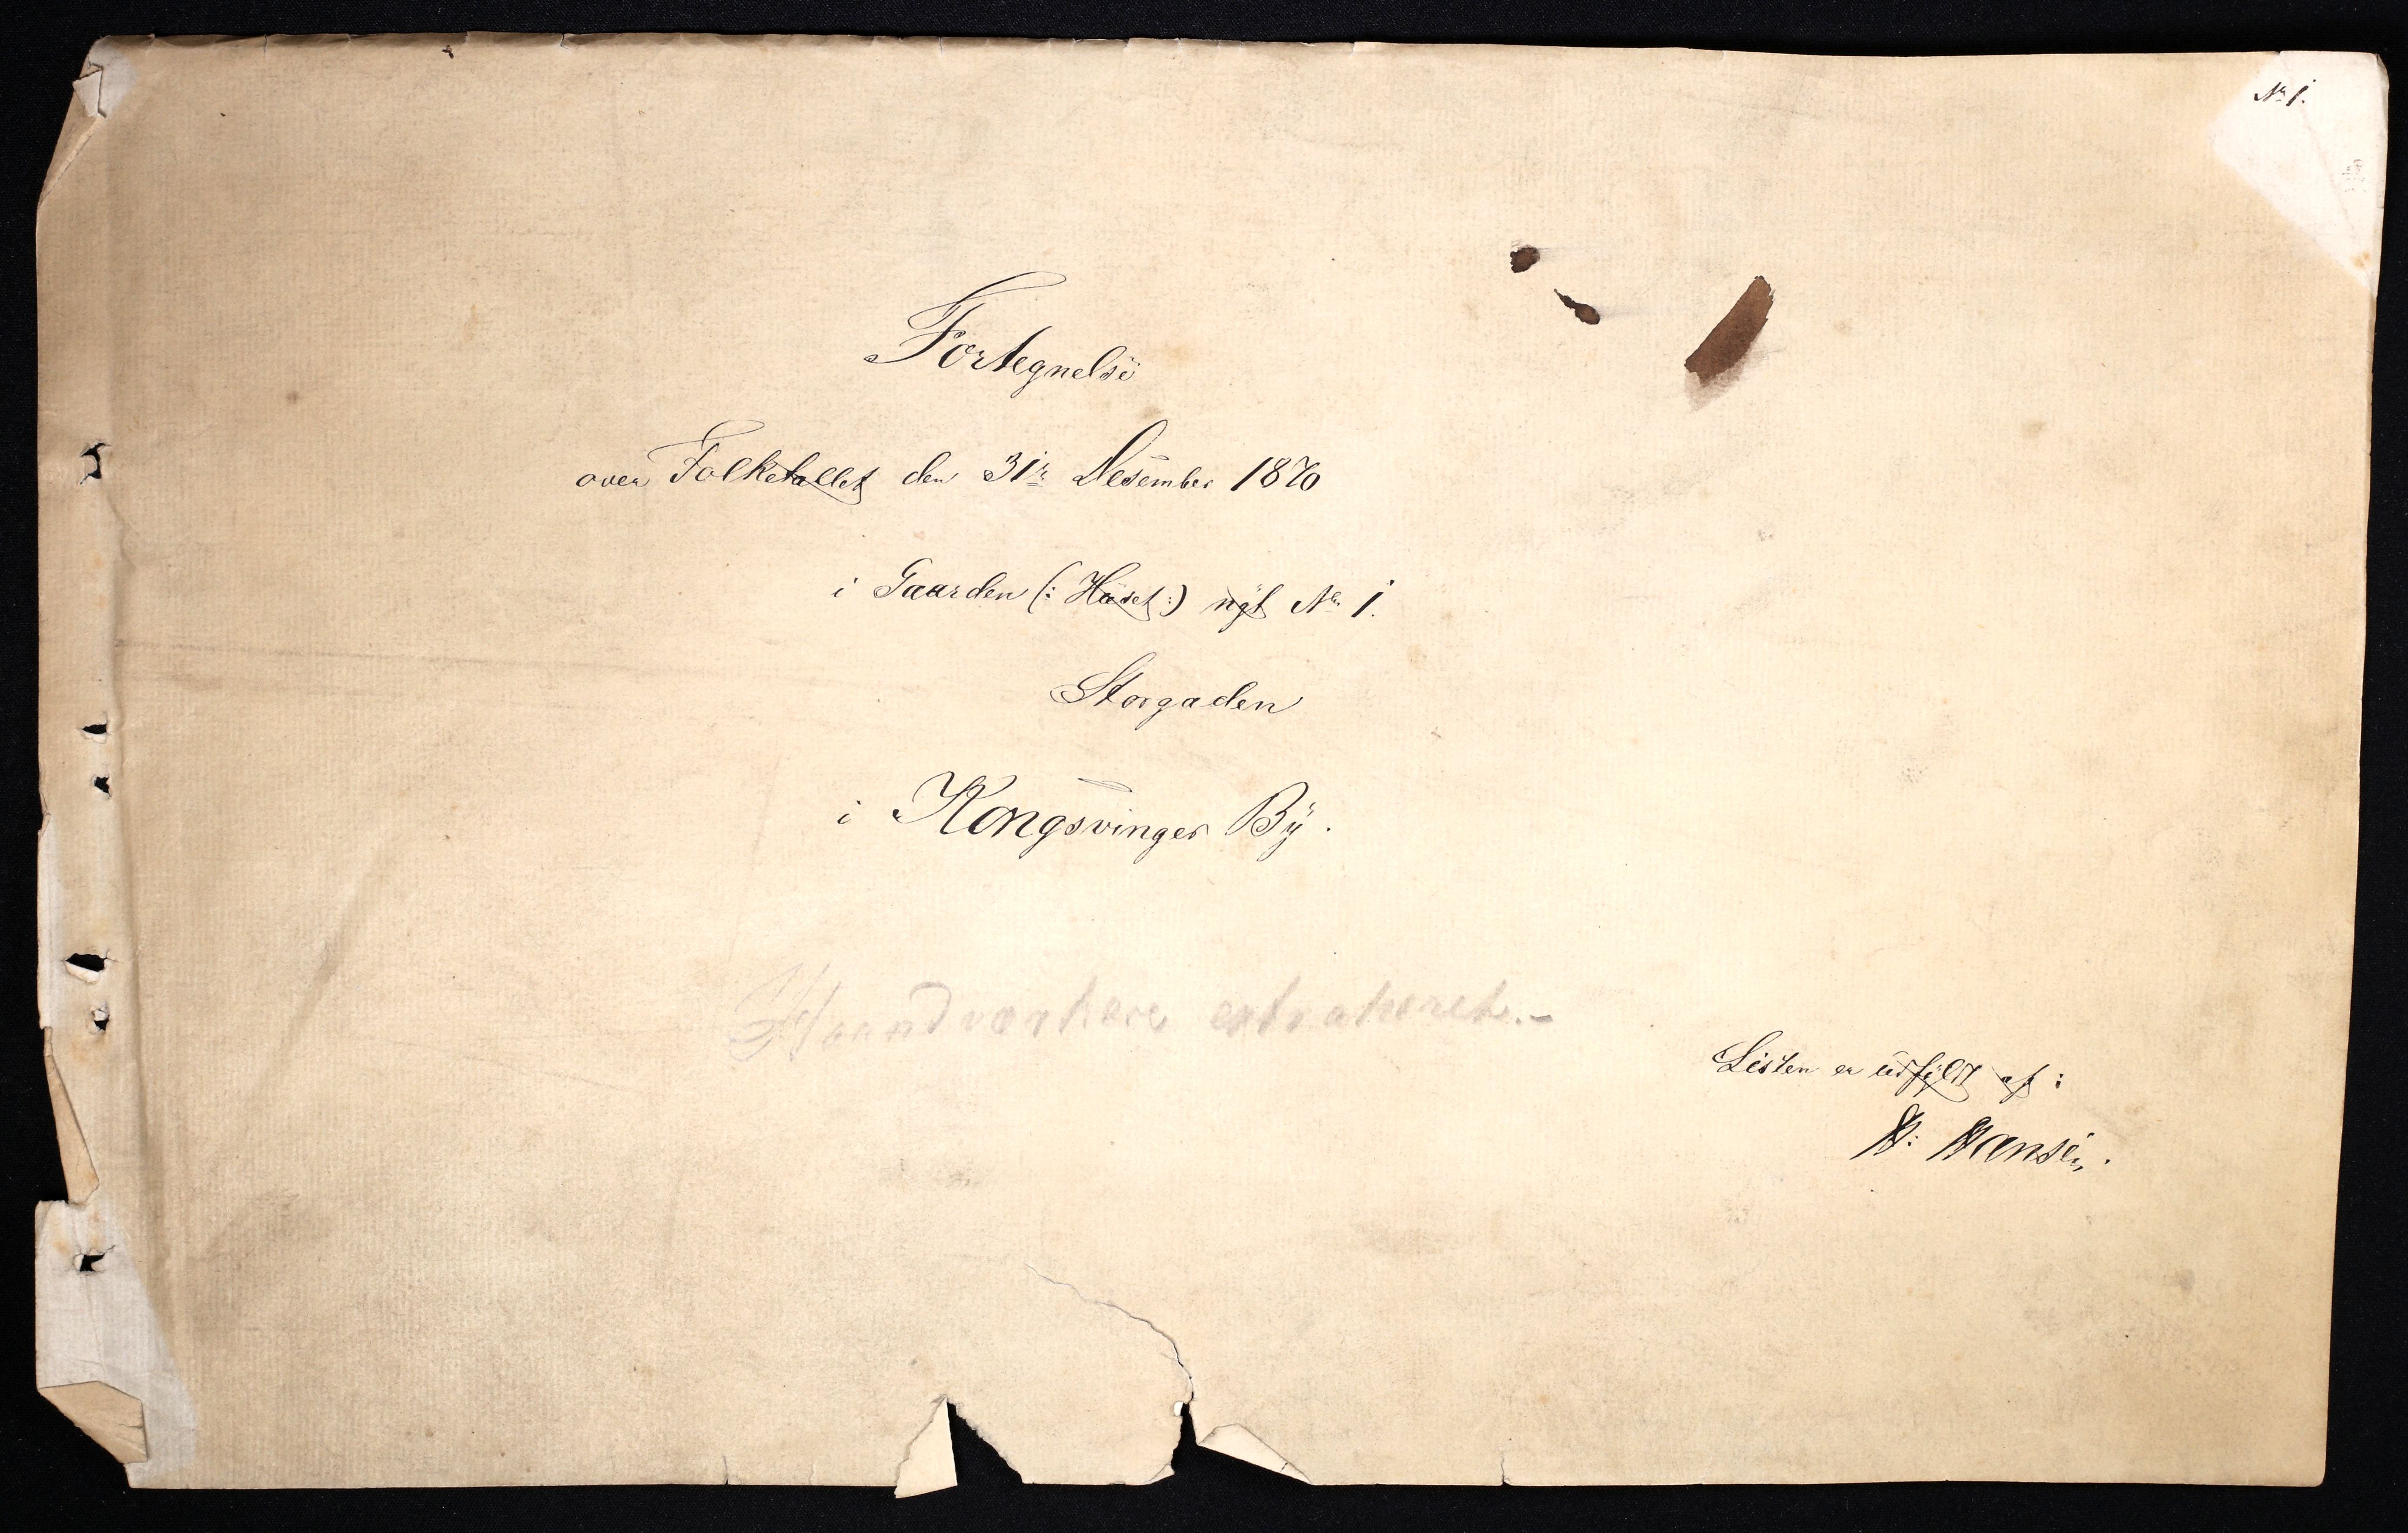 No 1.
Fortegnelse
over Folketallet den 31te Desember 1870
i Gaarden (: Huset :) nyt No 1.
Storgaden
i Kongsvinger By.
Haandværkere extraheret.-
Listen er udfyldt af:
H: Hansen.